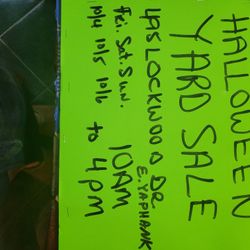 HALLOWEEN
YARD SALE
495 LOCKWOOD DR.
E. YAPHANK
Fri. Sat. Sun. 10AM
10/4 10/5 10/6 to 4PM